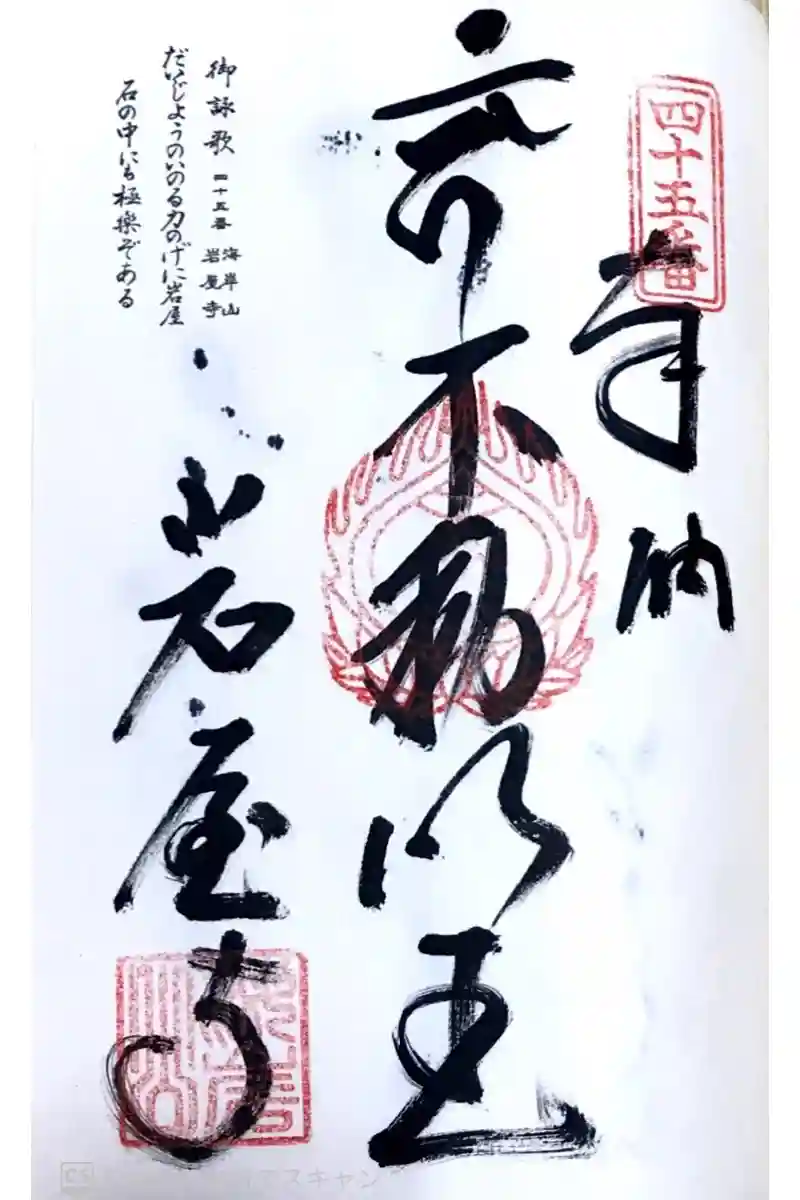 四十五番
奉納
不動明王
岩屋寺
御詠歌 四十五番 海岸山 岩屋寺
だいじょうのいのる力のげに岩屋
石の中にも極楽ぞある
CS
スキャン